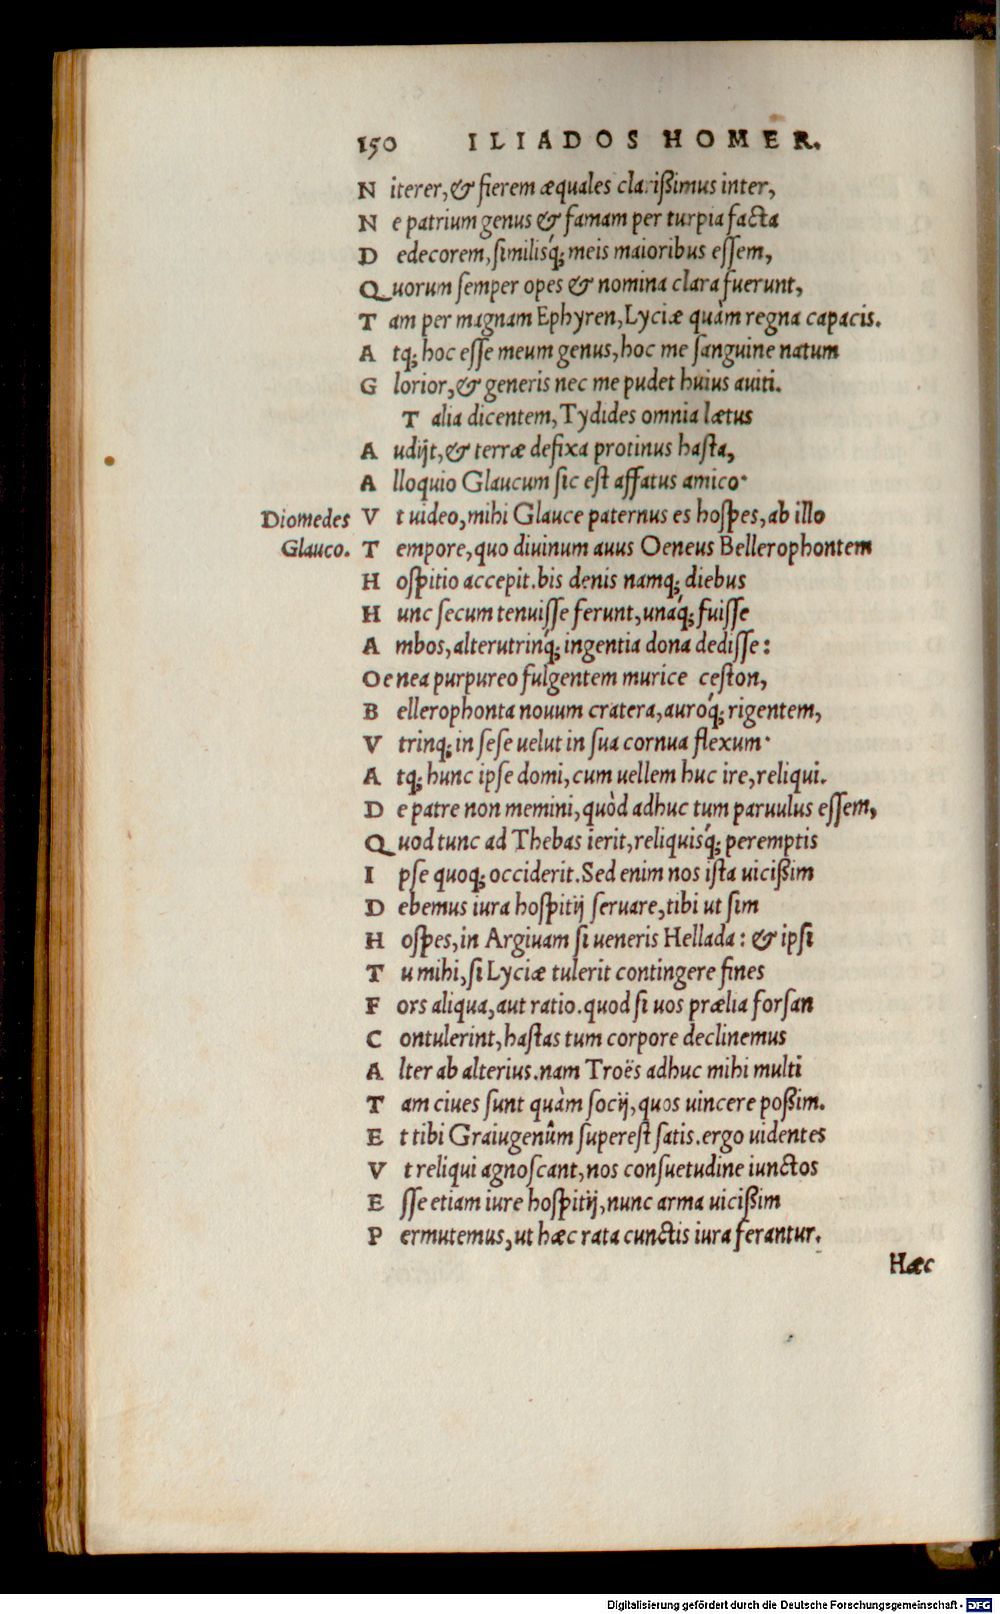 150 ILIADOS HOMER.
Niterer, & fierem æquales clarißimus inter,
Ne patrium genus & famam per turpia facta
Dedecorem, similisq́; meis maioribus essem,
Quorum semper opes & nomina clara fuerunt,
Tam per magnam Ephyren, Lyciæ quàm regna capacis.
Atq; hoc esse meum genus, hoc me sanguine natum
Glorior, & generis nec me pudet huius auiti.
Talia dicentem, Tydides omnia lætus
Audijt, & terræ defixa protinus hasta,
Alloquio Glaucum sic est affatus amico.
Diomedes Glauco.
Vt uideo, mihi Glauce paternus es hospes, ab illo
Tempore, quo diuinum auus Oeneus Bellerophontem
Hospitio accepit. bis denis namq; diebus
Hunc secum tenuisse ferunt, unaq́; fuisse
Ambos, alterutrinq́; ingentia dona dedisse:
Oenea purpureo fulgentem murice ceston,
Bellerophonta nouum cratera, auroq́; rigentem,
Vtrinq; in sese uelut in sua cornua flexum.
Atq; hunc ipse domi, cum uellem huc ire, reliqui.
De patre non memini, quòd adhuc tum paruulus essem,
Quod tunc ad Thebas ierit, reliquisq́; peremptis
Ipse quoq; occiderit. Sed enim nos ista uicißim
Debemus iura hospitij seruare, tibi ut sim
Hospes, in Argiuam si ueneris Hellada: & ipsi
Tu mihi, si Lyciæ tulerit contingere fines
Fors aliqua, aut ratio. quod si uos prælia forsan
Contulerint, hastas tum corpore declinemus
Alter ab alterius. nam Troës adhuc mihi multi
Tam ciues sunt quàm socij, quos uincere poßim.
Et tibi Graiugenûm superest satis. ergo uidentes
Vt reliqui agnoscant, nos consuetudine iunctos
Esse etiam iure hospitij, nunc arma uicißim
Permutemus, ut hæc rata cunctis iura ferantur.
Hæc
Digitalisierung gefördert durch die Deutsche Forschungsgemeinschaft - DFG